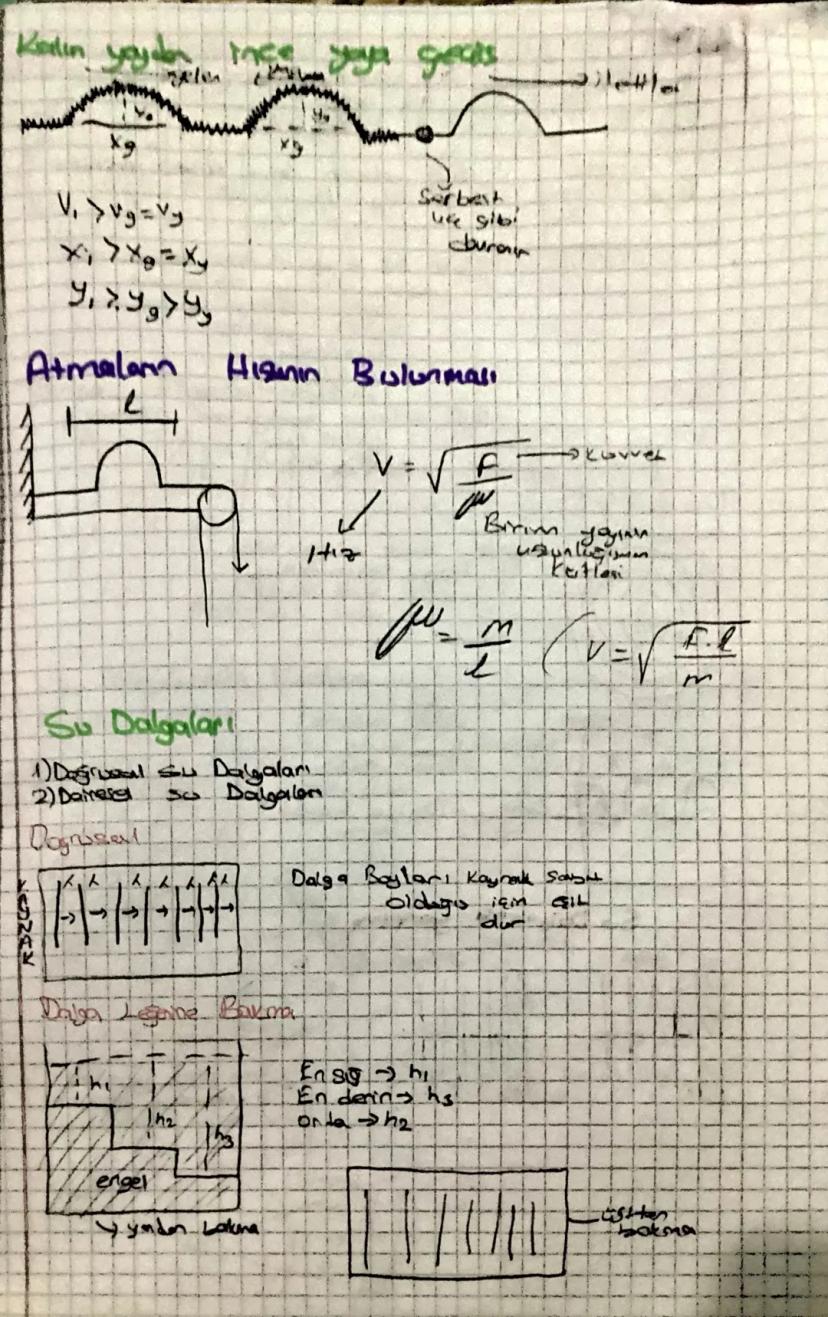 Kalın yaydan ince yaya geçiş
gelen
iletilen
y₀
y₀
xg
xy
Serbest
uç gibi
davranır
V₁ > Vg = Vy
x₁ > xg = xy
y₁ ≥ yg > yy
Atmaların Hızının Bulunması
l
V = √F/μ → Kuvvet
Hız
Birim yayının
uzunluğunun
kütlesi
μ = m/l ( V = √F.l/m
Su Dalgaları
1) Doğrusal su Dalgaları
2) Dairesel su Dalgaları
Doğrusal
KAYNAK
λ λ λ λ λ λ λ
Dalga Boyları Kaynak Sabit
olduğu için eşit
'dur
Dalga Leğenine Bakma
h₁
h₂
h₃
engel
→ yandan bakma
En sığ → h₁
En derin → h₃
orta → h₂
üstten
bakma